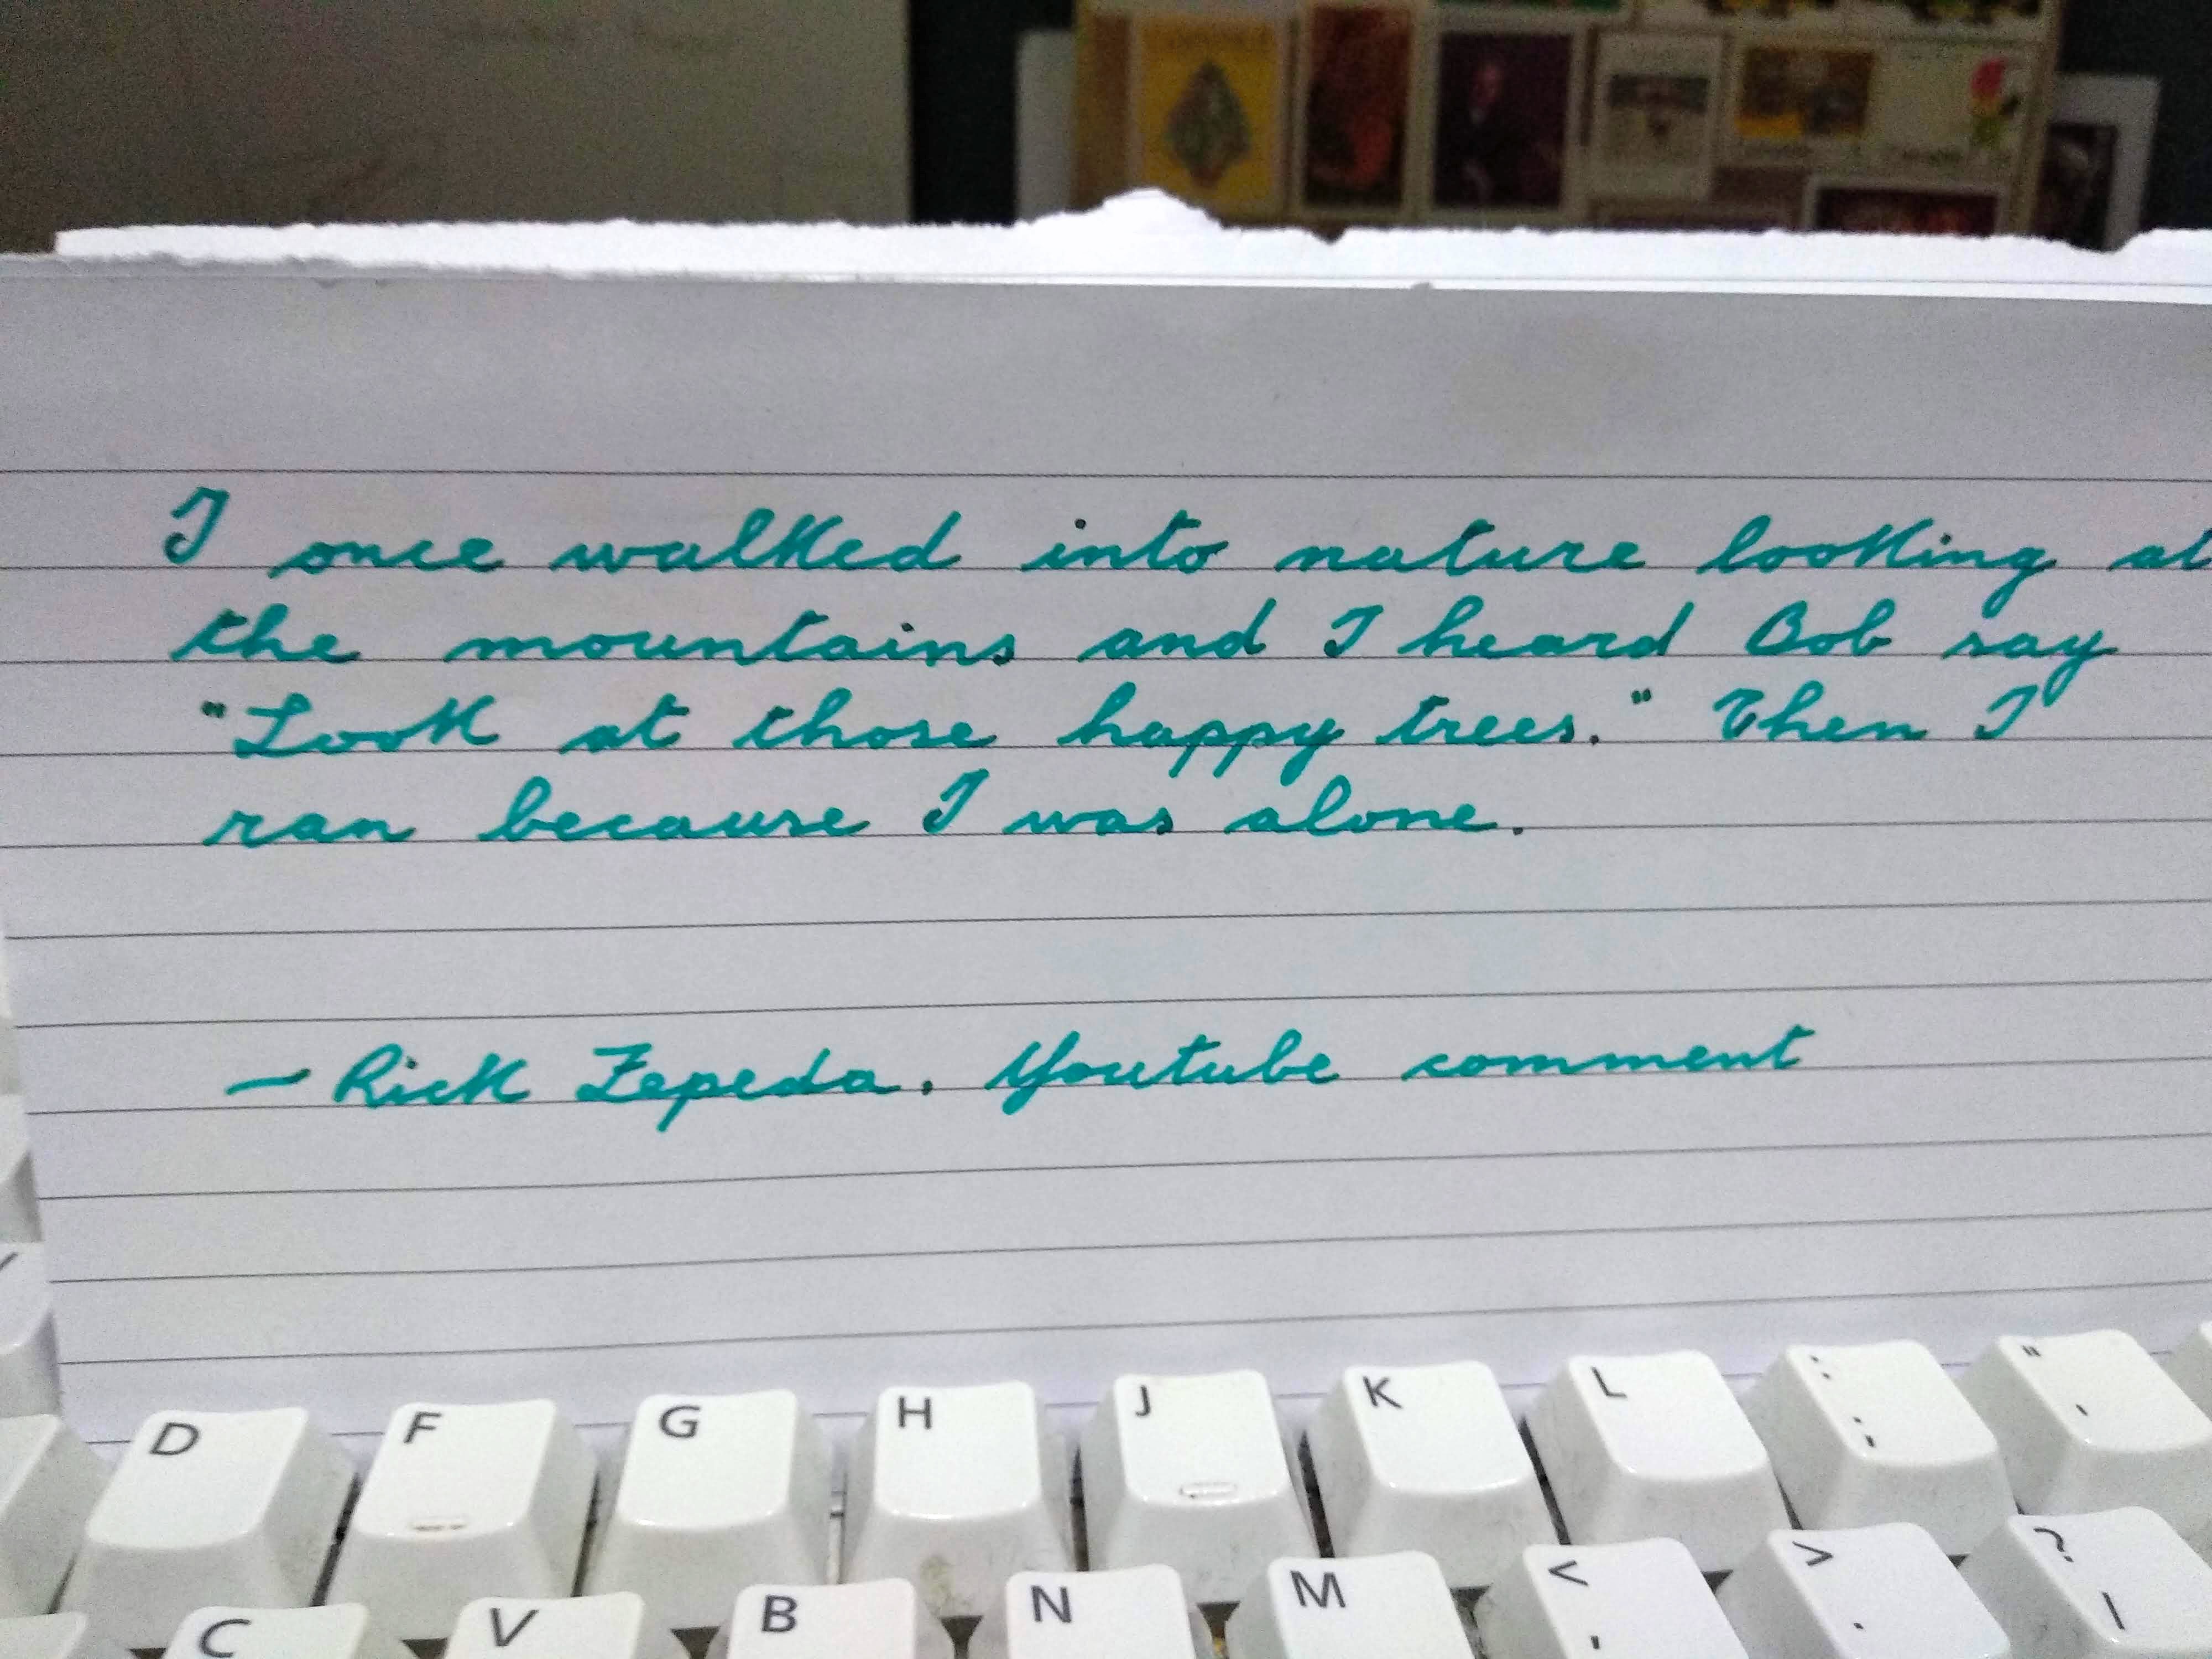 I once walked into nature looking at
the mountains and I heard Bob say
"Look at those happy trees." Then I
ran because I was alone.
~ Rick Zepeda. Youtube comment
D F G H J K L : ; " '
C V B N M < , > . ? /